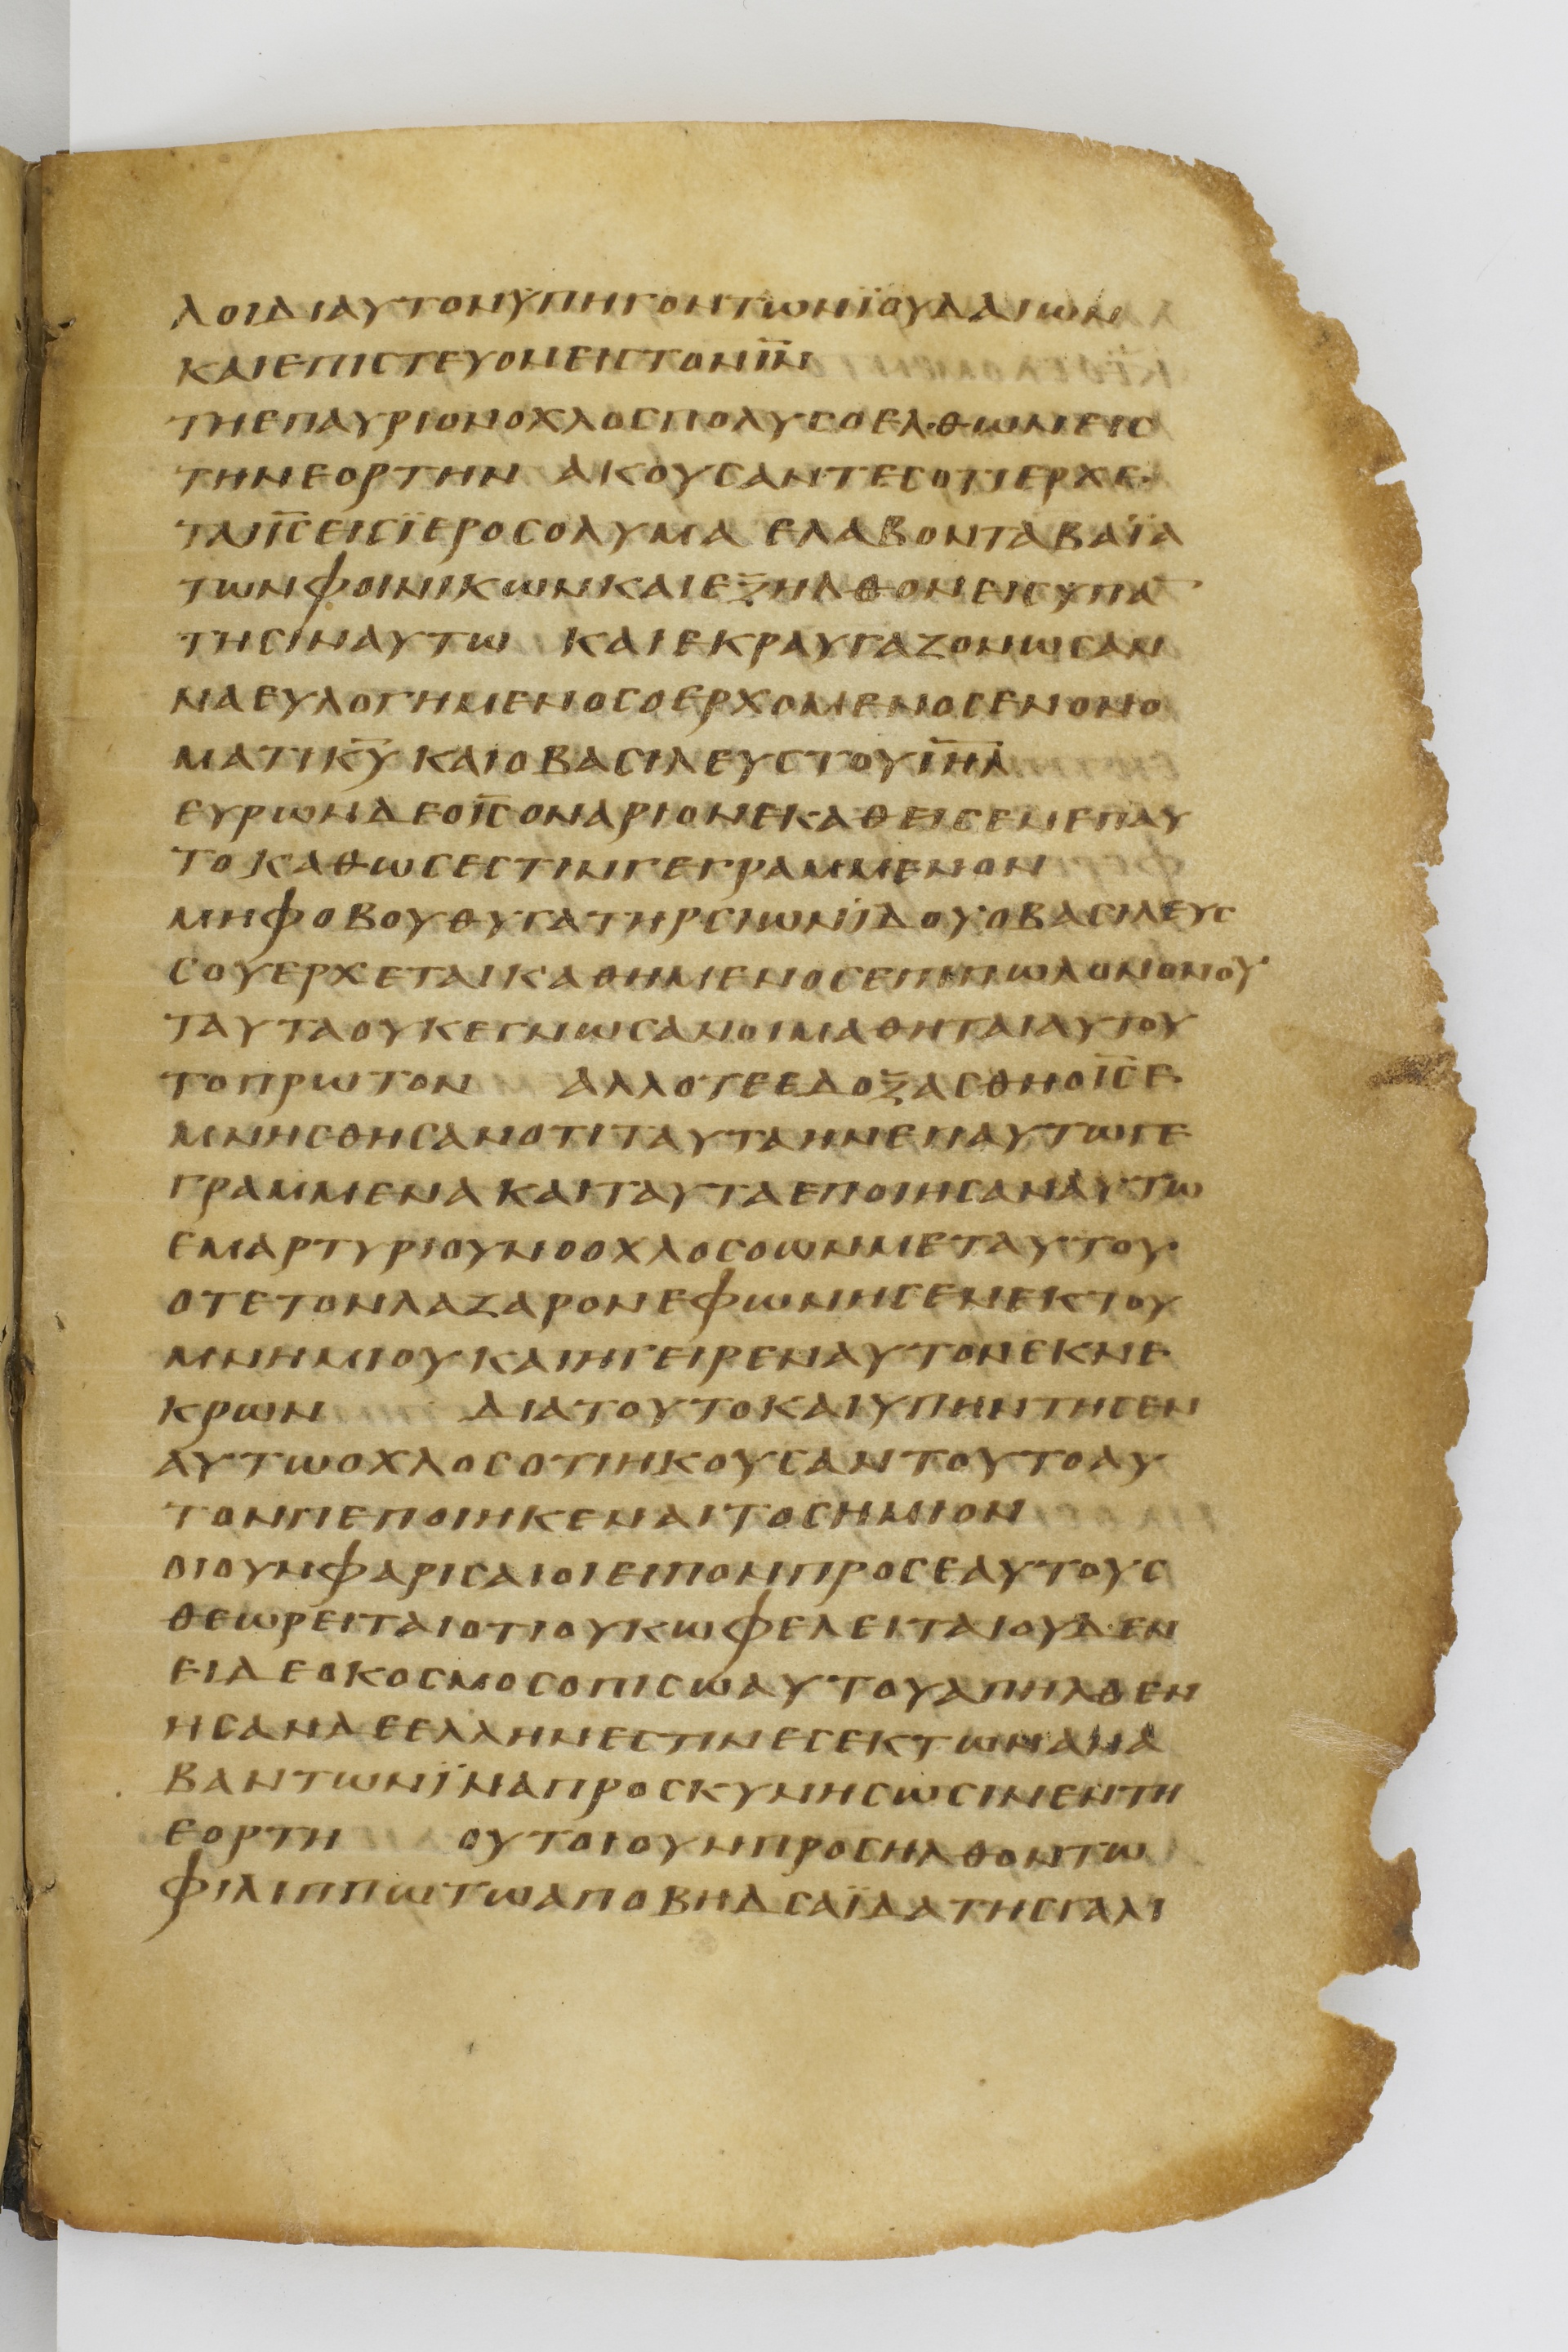 ΛΟΙΔΙΑΥΤΟΝΫΠΗΓΟΝΤΩΝΪΟΥΔΑΙΩΝ
ΚΑΙΕΠΙΣΤΕΥΟΝΕΙΣΤΟΝΙ̅Ν̅
ΤΗΕΠΑΥΡΙΟΝΟΧΛΟΣΠΟΛΥΣΟΕΛΘΩΝΕΙΣ
ΤΗΝΕΟΡΤΗΝ ΑΚΟΥΣΑΝΤΕΣΟΤΙΕΡΧΕ
ΤΑΙΙ̅Σ̅ΕΙΣΪΕΡΟΣΟΛΥΜΑ ΕΛΑΒΟΝΤΑΒΑΪΑ
ΤΩΝΦΟΙΝΙΚΩΝΚΑΙΕΞΗΛΘΟΝΕΙΣΥΠΑ
ΤΗΣΙΝΑΥΤΩ ΚΑΙΕΚΡΑΥΓΑΖΟΝΩΣΑΝ
ΝΑΕΥΛΟΓΗΜΕΝΟΣΟΕΡΧΟΜΕΝΟΣΕΝΟΝΟ
ΜΑΤΙΚ̅Υ̅ ΚΑΙΟΒΑΣΙΛΕΥΣΤΟΥΙ̅Η̅Λ̅
ΕΥΡΩΝΔΕΟΙ̅Σ̅ΟΝΑΡΙΟΝΕΚΑΘΕΙΣΕΝΕΠΑΥ
ΤΟΚΑΘΩΣΕΣΤΙΝΓΕΓΡΑΜΜΕΝΟΝ
ΜΗΦΟΒΟΥΘΥΓΑΤΗΡΣΙΩΝΪΔΟΥΟΒΑΣΙΛΕΥΣ
ΣΟΥΕΡΧΕΤΑΙΚΑΘΗΜΕΝΟΣΕΠΙΠΩΛΟΝΟΝΟΥ
ΤΑΥΤΑΟΥΚΕΓΝΩΣΑΝΟΙΜΑΘΗΤΑΙΑΥΤΟΥ
ΤΟΠΡΩΤΟΝ ΑΛΛΟΤΕΕΔΟΞΑΣΘΗΟΙ̅Σ̅Ε
ΜΝΗΣΘΗΣΑΝΟΤΙΤΑΥΤΑΗΝΕΠΑΥΤΩΓΕ
ΓΡΑΜΜΕΝΑΚΑΙΤΑΥΤΑΕΠΟΙΗΣΑΝΑΥΤΩ
ΕΜΑΡΤΥΡΙΟΥΝΟΟΧΛΟΣΟΩΝΜΕΤΑΥΤΟΥ
ΟΤΕΤΟΝΛΑΖΑΡΟΝΕΦΩΝΗΣΕΝΕΚΤΟΥ
ΜΝΗΜΙΟΥΚΑΙΗΓΕΙΡΕΝΑΥΤΟΝΕΚΝΕ
ΚΡΩΝ ΔΙΑΤΟΥΤΟΚΑΙΥΠΗΝΤΗΣΕΝ
ΑΥΤΩΟΧΛΟΣΟΤΙΗΚΟΥΣΑΝΤΟΥΤΟΑΥ
ΤΟΝΠΕΠΟΙΗΚΕΝΑΙΤΟΣΗΜΙΟΝ
ΟΙΟΥΝΦΑΡΙΣΑΙΟΙΕΙΠΟΝΠΡΟΣΕΑΥΤΟΥΣ
ΘΕΩΡΕΙΤΑΙΟΤΙΟΥΚΩΦΕΛΕΙΤΑΙΟΥΔΕΝ
ΕΙΔΕΟΚΟΣΜΟΣΟΠΙΣΩΑΥΤΟΥΑΠΗΛΘΕΝ
ΗΣΑΝΔΕΕΛΛΗΝΕΣΤΙΝΕΣΕΚΤΩΝΑΝΑ
ΒΑΝΤΩΝΪΝΑΠΡΟΣΚΥΝΗΣΩΣΙΝΕΝΤΗ
ΕΟΡΤΗ ΟΥΤΟΙΟΥΝΠΡΟΣΗΛΘΟΝΤΩ
ΦΙΛΙΠΠΩΤΩΑΠΟΒΗΔΣΑΪΔΑΤΗΣΓΑΛΙ